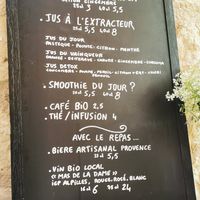 CITRON GINGEMBRE
25cl 3 5,5
• JUS À L'EXTRACTEUR
25cl 5,5 40cl 8
JUS DU JOUR
PASTÈQUE - POMME - CITRON - MENTHE
JUS DU VAINQUEUR
ORANGE - BETTERAVE - CAROTTE - GINGEMBRE - CURCUMA
JUS DETOX
CONCOMBRE - POMME - CITRON
• SMOOTHIE DU JOUR ?
25cl 5,5 40cl 8
• CAFÉ BIO 2,5
• THÉ/INFUSION 4
AVEC LE REPAS...
• BIÈRE ARTISANAL PROVENCE
33cl 5,5
• VIN BIO LOCAL
« MAS DE LA DAME »
IGP ALPILLES, ROUGE, ROSÉ, BLANC
6 24